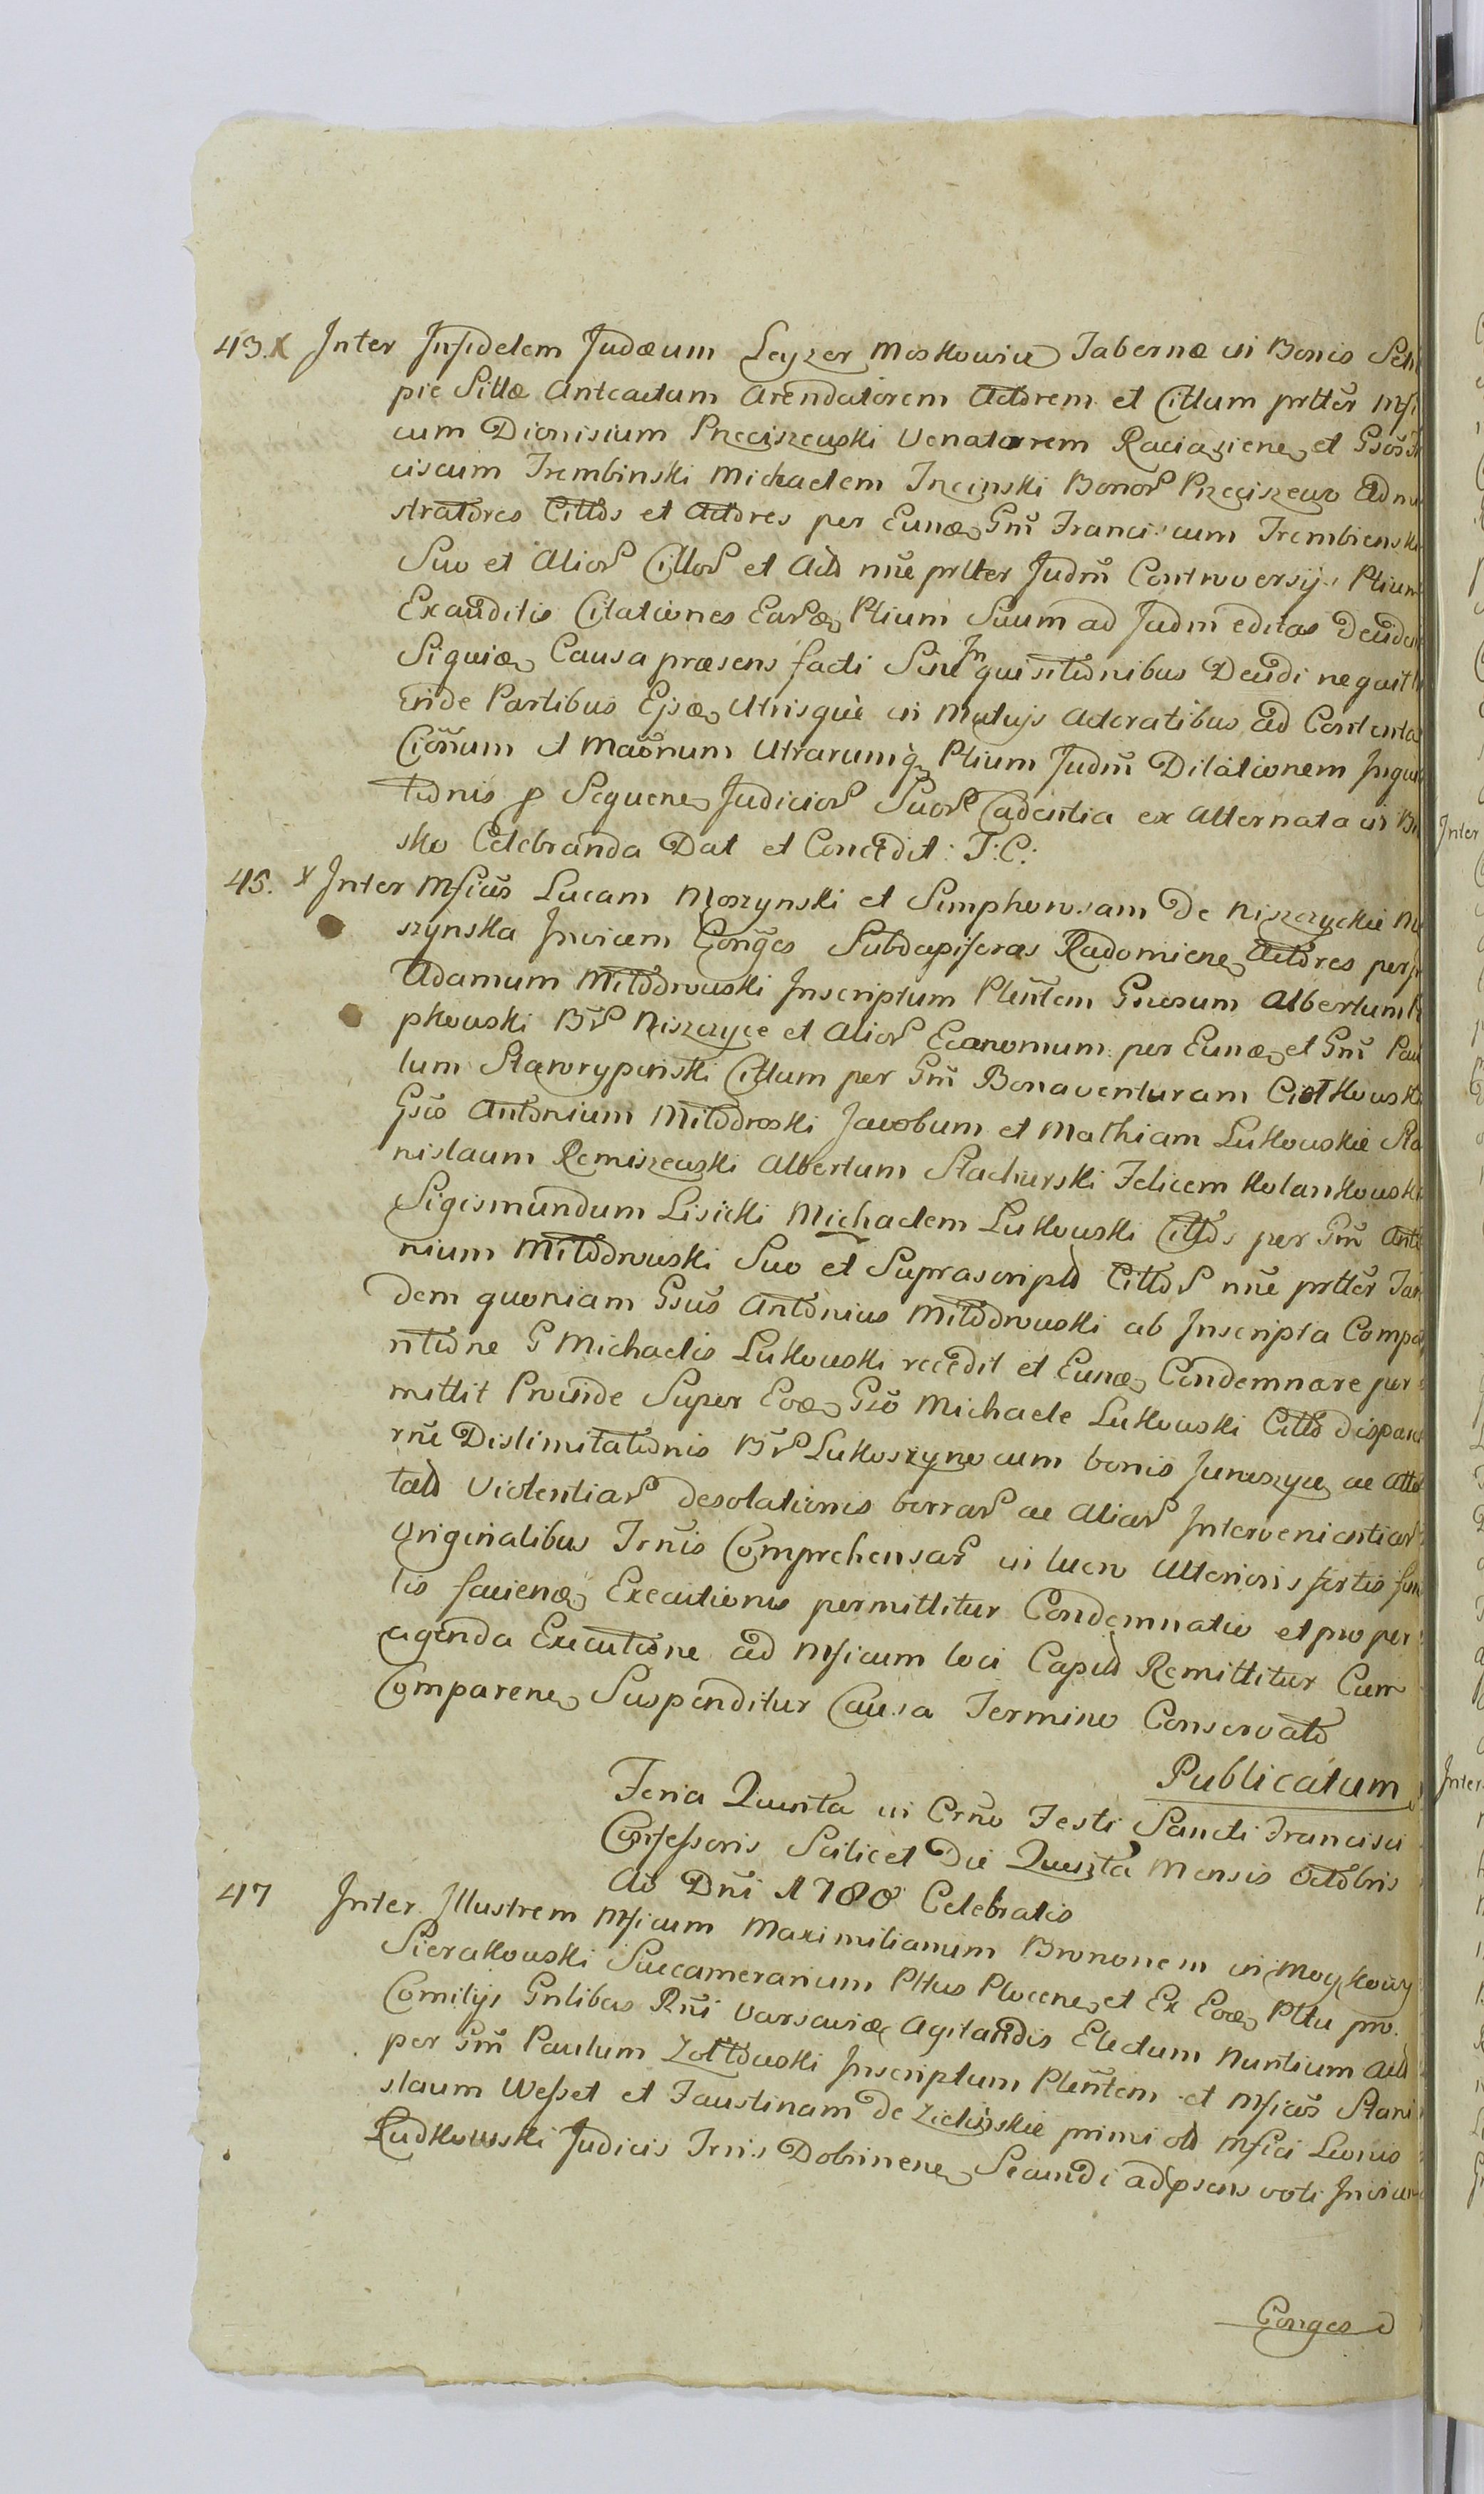 43. X Inter Infidelem Judæum Leyzer Moskowicz Tabernæ in Bonis
pie Sittæ Anteactum Arendatorem Actorem et Cittum prtter
cum Dionisium Preciszewski Venatorem Raciaziene et Gsos
ciscum Trembinski Michaelem Trecinski Bonor Preciszewo
stratores Cittos et Actores per Eunæ Gm Franciscum Trembienski
Suo et Alior Cittor et Acto nne prtter Judm Controversijs Ptium
Exauditis Citationes Earæ Ptium Suum ad Judm editas
Siquiæ Causa præsens facti Sine Inquisitionibus Decidi nequit
inde Partibus Ejsæ Utrisque in Mutuijs Actoratibus Ad
Cionum et Maonum Utrarumq Ptium Judm Dilationem
tionis p Sequene Judicior Suor Cadentia ex Alternata in
sko Celebranda Dat et Concedit: T: C:
45. X Inter Mficos Lucam Moszynski et Simphorosam De Niszczyckie
szynska Invicem Conges Subdapiferos Radomiene Actores per
Adamum Milodrowski Inscriptum Plentem Gnrosum Albertum
pkowski Br Niszczyce et Alior Econonum per Eunæ et Gm
lum Skarzypinski Cittum per Gm Bonaventuram Ciolkowski
Gsos Antonium Milodroski Jacobum et Mathiam Lukowskie
nislaum Remiszewski Albertum Stachurski Felicem Kolankowski
Sigismundum Lisicki Michaelem Lukowski Cittos per Gm
nium Milodrowski Suo et Suprascripto Cittor nne prtter
dem quoniam Gsus Antonius Milodrowski ab Inscripta
ritione G Michaelis Lukowski recedit et Eunæ Condemnare per
mittit Proinde Super Eoæ Gso Michaele Lukowski Citto
rne Dislimitationis Br Lukoszyno cum bonis Juroszyce ac
tato Violentiar desolationis borrar ac Aliar Intervenientiar
Originalibus Trnis Comprehensar in lucro Ulterioris fortis
lis faciene Executionis permittitur Condemnatio et pro per
agenda Executione ad Mficum loci Capto Remittitur Cum
Comparene Suspenditur Causa Termino Conservato
Publicatum
Feria Quinta in Crno Festi Sancti Francisci
Confessoris Scilicet Die Quinta Mensis Octobris
Ao Dni 1788 Celebratis
47 Inter Illustrem Mficum Maximilianum Brunonem in
Sierakowski Succamerarium Pttus Plocene et Ex Eoæ Pttu pro
Comitijs Gnlibus Rni Varsaviæ Agitandis Electum Nuntium Acto
per Gm Paulum Zoltowski Inscriptum Plentem et Mficos Stani
slaum Wessel et Faustinam de Zielinskie primi olo Mfici Leonis
Rudkowski Judicis Trris Dobrinene Secundi ad psens voti
Conges